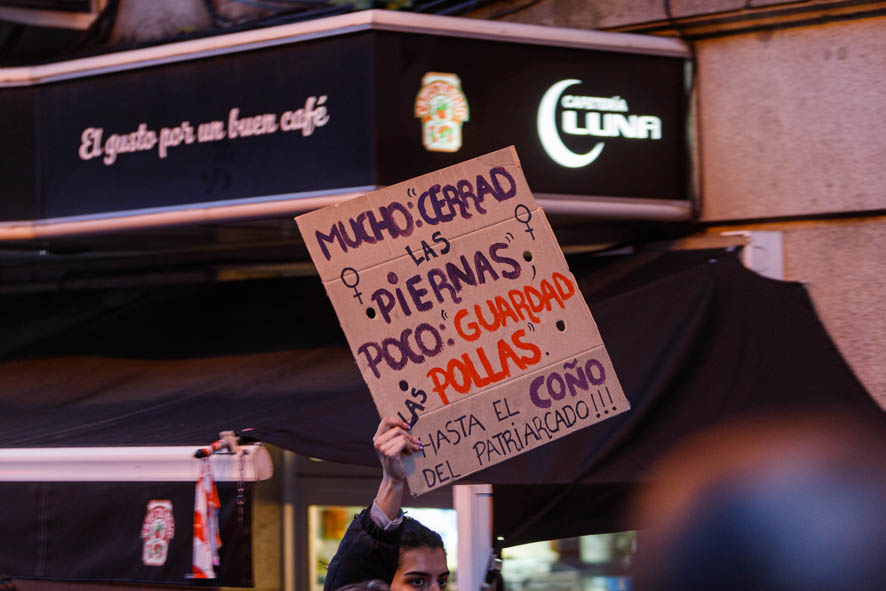 El gusto por un buen café
CAFETERÍA
LUNA
MUCHO: "CERRAD
LAS
PIERNAS",
POCO: "GUARDAD
LAS POLLAS".
HASTA EL COÑO
DEL PATRIARCADO!!!